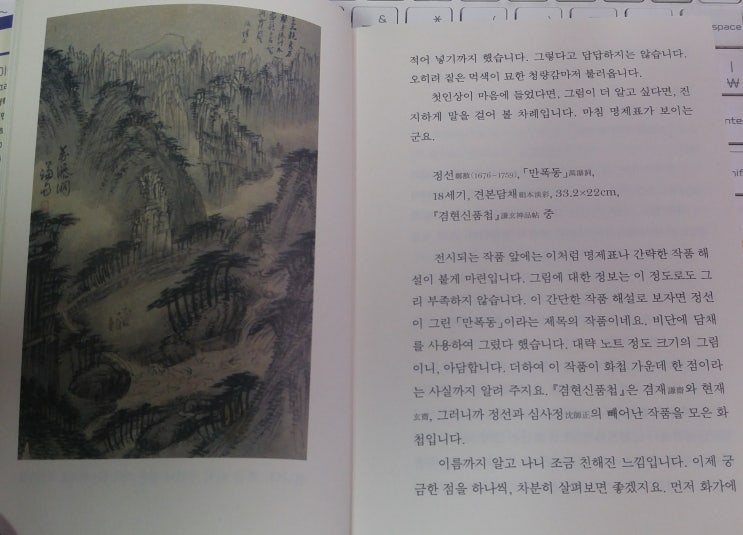 萬瀑洞
적어 넣기까지 했습니다. 그렇다고 답답하지는 않습니다.
오히려 짙은 먹색이 묘한 청량감마저 불러옵니다.
첫인상이 마음에 들었다면, 그림이 더 알고 싶다면, 진
지하게 말을 걸어 볼 차례입니다. 마침 명제표가 보이는
군요.
정선鄭敾(1676~1759), 「만폭동」萬瀑洞,
18세기, 견본담채絹本淡彩, 33.2×22cm,
『겸현신품첩』謙玄神品帖 중
전시되는 작품 앞에는 이처럼 명제표나 간략한 작품 해
설이 붙게 마련입니다. 그림에 대한 정보는 이 정도로도 그
리 부족하지 않습니다. 이 간단한 작품 해설로 보자면 정선
이 그린 「만폭동」이라는 제목의 작품이네요. 비단에 담채
를 사용하여 그렸다 했습니다. 대략 노트 정도 크기의 그림
이니, 아담합니다. 더하여 이 작품이 화첩 가운데 한 점이라
는 사실까지 알려 주지요. 『겸현신품첩』은 겸재謙齋와 현재
玄齋, 그러니까 정선과 심사정沈師正의 빼어난 작품을 모은 화
첩입니다.
이름까지 알고 나니 조금 친해진 느낌입니다. 이제 궁
금한 점을 하나씩, 차분히 살펴보면 좋겠지요. 먼저 화가에
&
*
(
)
space
₩